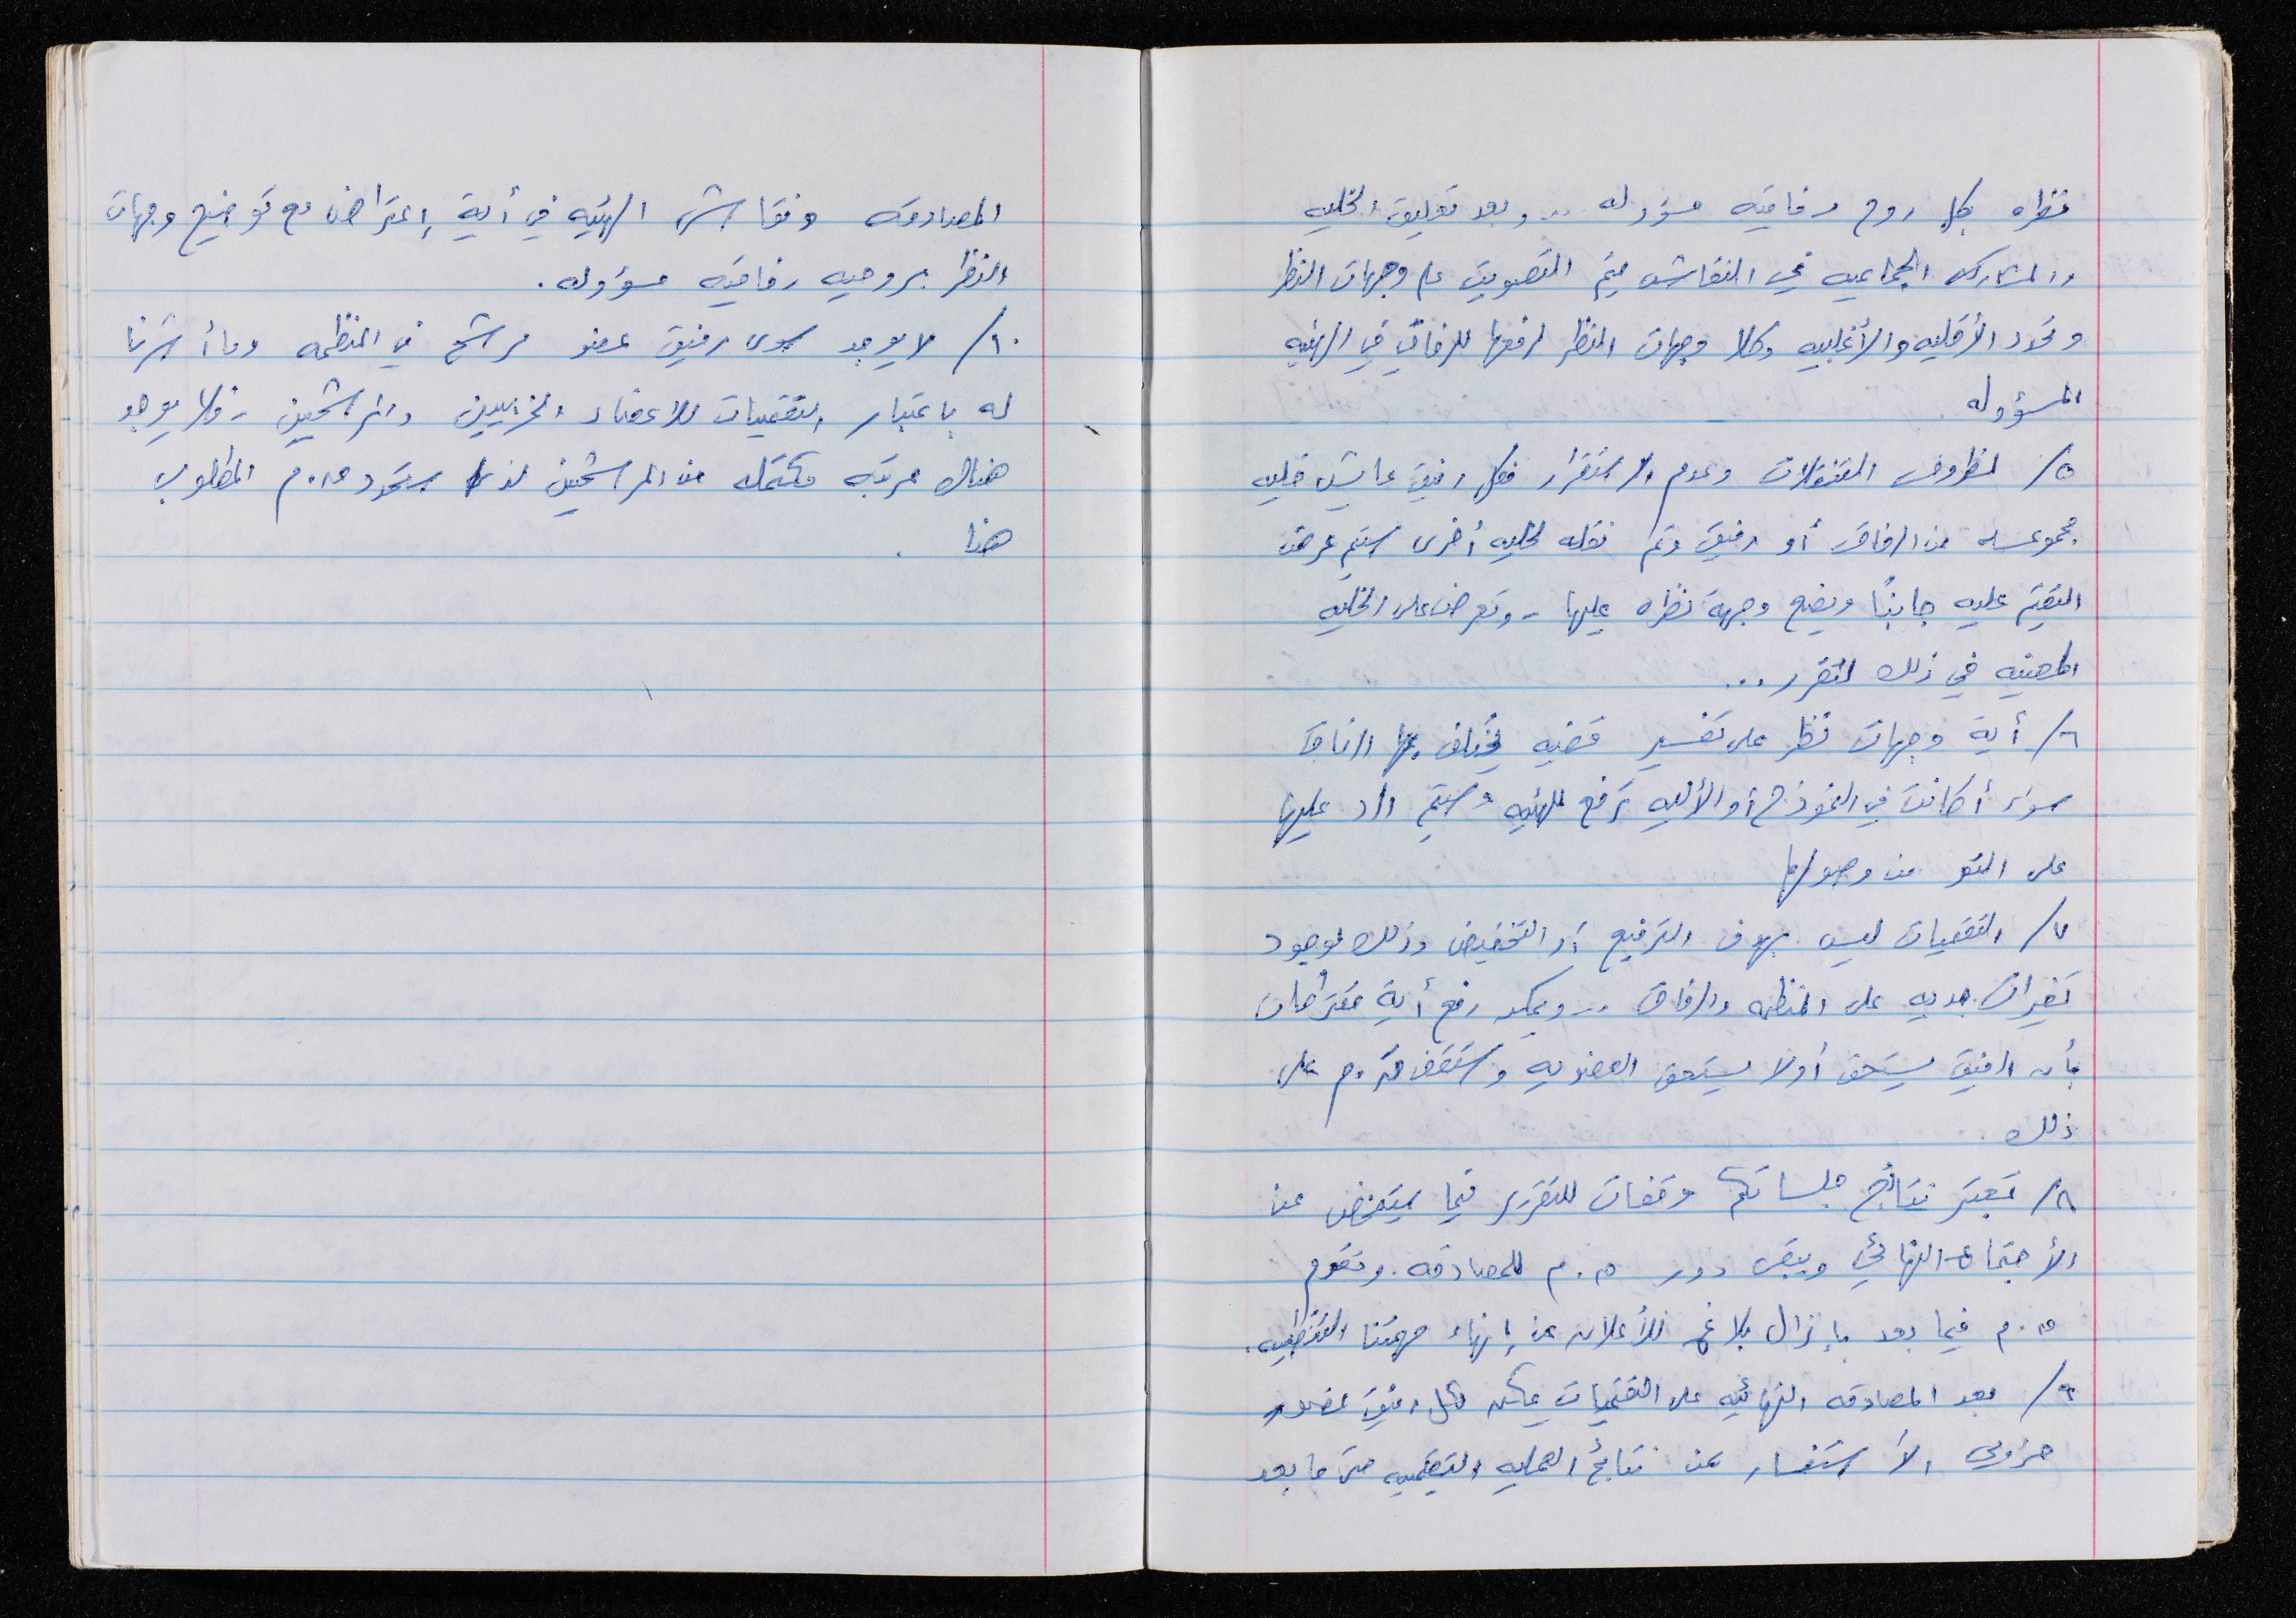 نظره بكل روح رفاقيه مسؤوله ... وبعد تعليق الخليه
والمشاركه الجماعيه في النقاش يتم التصويت على وجهات النظر
وتحدد الأقليه والأغلبيه وكلا وجهات النظر لرفعها للرفاق في الهيئه
المسؤوله
٥/ لظروف التنقلات وعدم الاستقرار فكل رفيق عايش خليه
مجموعه من الرفاق أو رفيق وتم نقله لخليه أخرى سيتم عرض
التقيم عليه جانبًا ويضع وجهة نظره عليها - وتعرض على الخليه
المعنيه في ذلك لتقرر ...
٦/ أية وجهات نظر على تفسير قضيه يختلف بها الرفاق
سواء أكانت في النموذج أو الأليه ترفع للهيئه وسيتم الرد عليها
على التو من وصولها
٧/ التقيمات ليس بهدف الترفيع أو التخفيض وذلك لوجود
تغيرات جديه على المنظمه والرفاق .. ويمكن رفع أية مقترحات
بأن الرفيق يستحق أولا يستحق العضويه وستقف م.م على
ذلك .
٨/ تعتبر نتائج جلساتكم وقفات للتقرير فيما يتمخض عن
الأجتماع النهائي ويبقى دور م.م للمصادقه . وتقوم
م.م فيما بعد بإنزال بلاغ للأعلان عن إنهاء مهمتنا التنظيميه .
٩/ بعد المصادقه النهائيه على التقيمات يمكن لكل رفيق عضو
حزبي الأستفسار عن نتائج العمليه التقيميه حتى ما بعد
المصادقه ونقاش الهيئه في أية إعتراض مع توضيح وجهات
النظر بروحيه رفاقيه مسؤوله .
١٠/ لا يوجد سوى رفيق عضو مرشح في المنظمه وما أشرنا
له باعتبار التقميات للأعضاء الحزبيين والمرشحين - فلا يوجد
هناك مرتبه مكتمله من المرشحين لذا ستحدد م.م المطلوب
هنا .